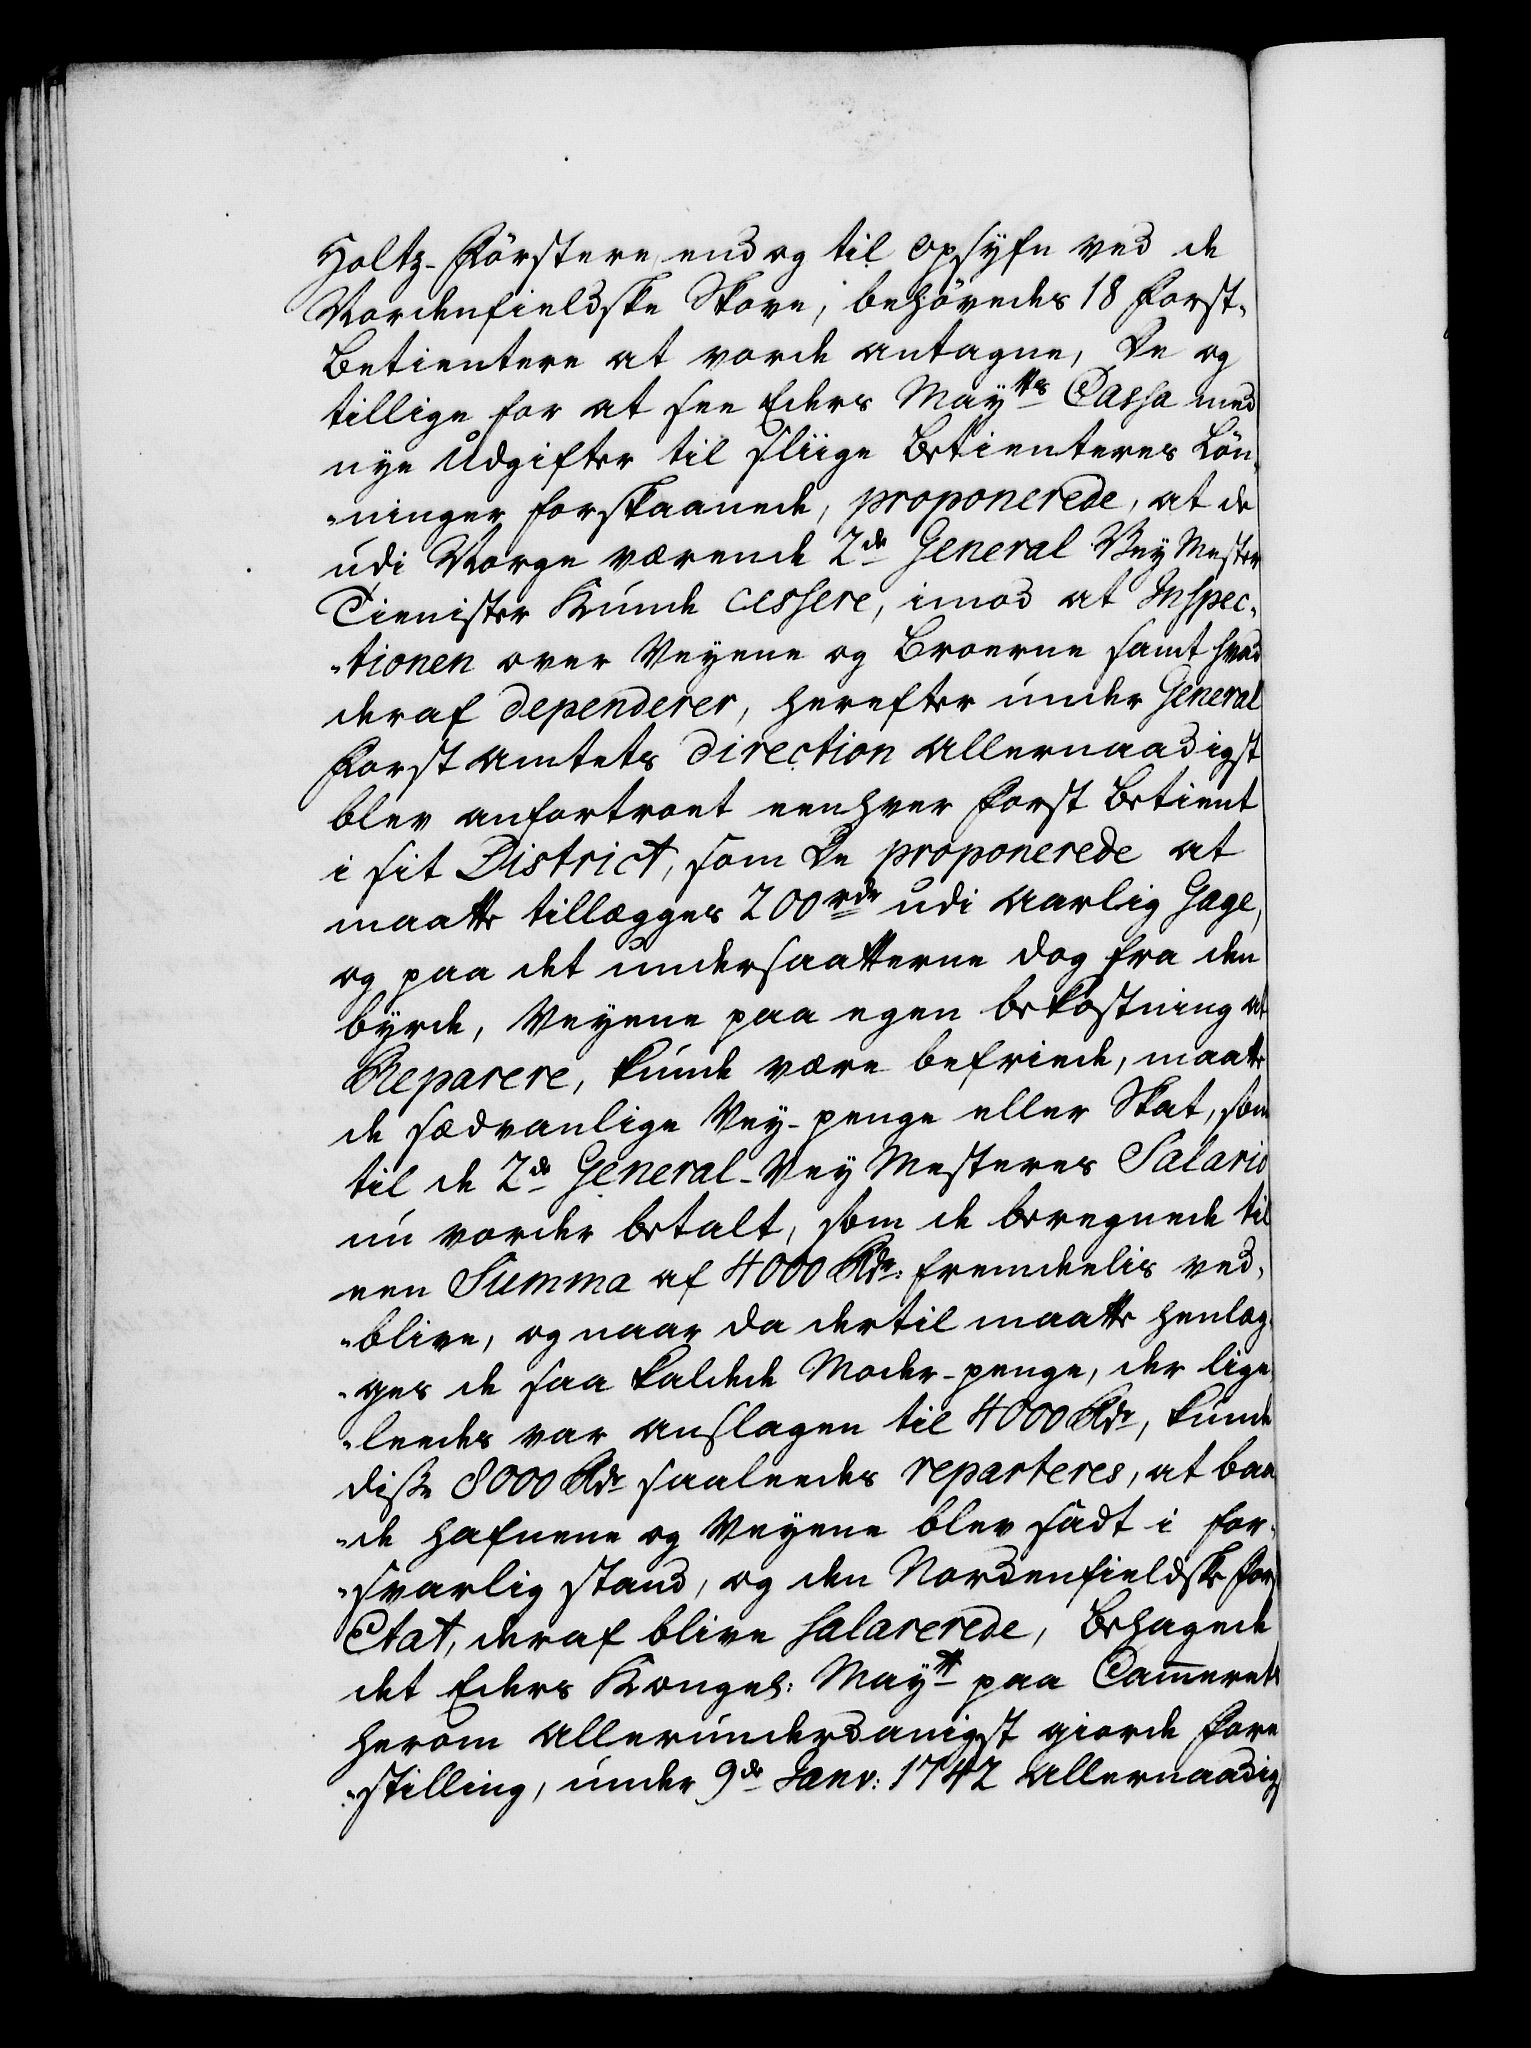 Holtz-Förstere, end og til Opsÿfn ved de
Nordenfieldske Skove, behövedes 18 Forst-
Betientere at vorde antagne, De og
tillige for at see Eders Maÿtts Cassa med
nye Udgifter til sliige Betienteres Lön-
-ninger forskaanede, proponerede, at de
udi Norge værende 2de General Veÿ Mester
Tienister kunde cessere, imod at Inspec-
-tionen over Veÿene og Broerne samt hvad
deraf dependerer, herefter under General
Forst Amtets Direction Allernaadigst
blev anfortroet eenhver Forst Betient
i sit District, som De proponerede at
maatte tillægges 200 rdr udi Aarlig Gage,
og paa det Undersaatterne dog fra den
bÿrde, Veÿene paa egen bekostning at
Reparere, kunde være befriede, maatte
de sædvanlige Veÿ-penge eller Skat, som
til de 2de General-Veÿ Mesteres Salario
nu vorder betalt, som de beregnede til
een Summa af 4000 Rdr: fremdeelis ved-
-blive, og naar da dertil maatte henlæg-
-ges de saa kaldede Moder-penge, der lige-
-leedes var anslagen til 4000 Rdr, kunde
disse 8000 Rdr saaleedes reparteres, at baa-
-de Hafnene og Veÿene blev sadt i for-
-svarlig stand, og den Nordenfieldske For
Etat, deraf blive salarerede, Behagede
det Eders Kongel: Maÿtt paa Cammerets
herom Allerunderdanigst giorde Fore
-stilling, under 9de Janv: 1742 Allernaadig